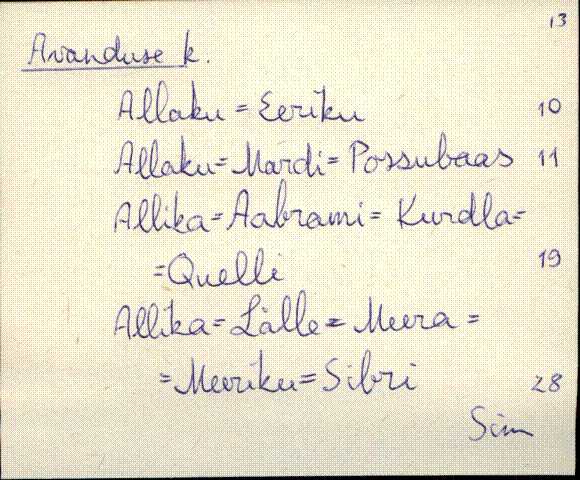 13
Avanduse k.
Allaku = Eeriku 10
Allaku = Mardi = Possubaas 11
Allika = Aabrami = Kurdla =
= Quelli 19
Allika = Lälle = Meera =
= Meeriku = Sibri 28
Sim